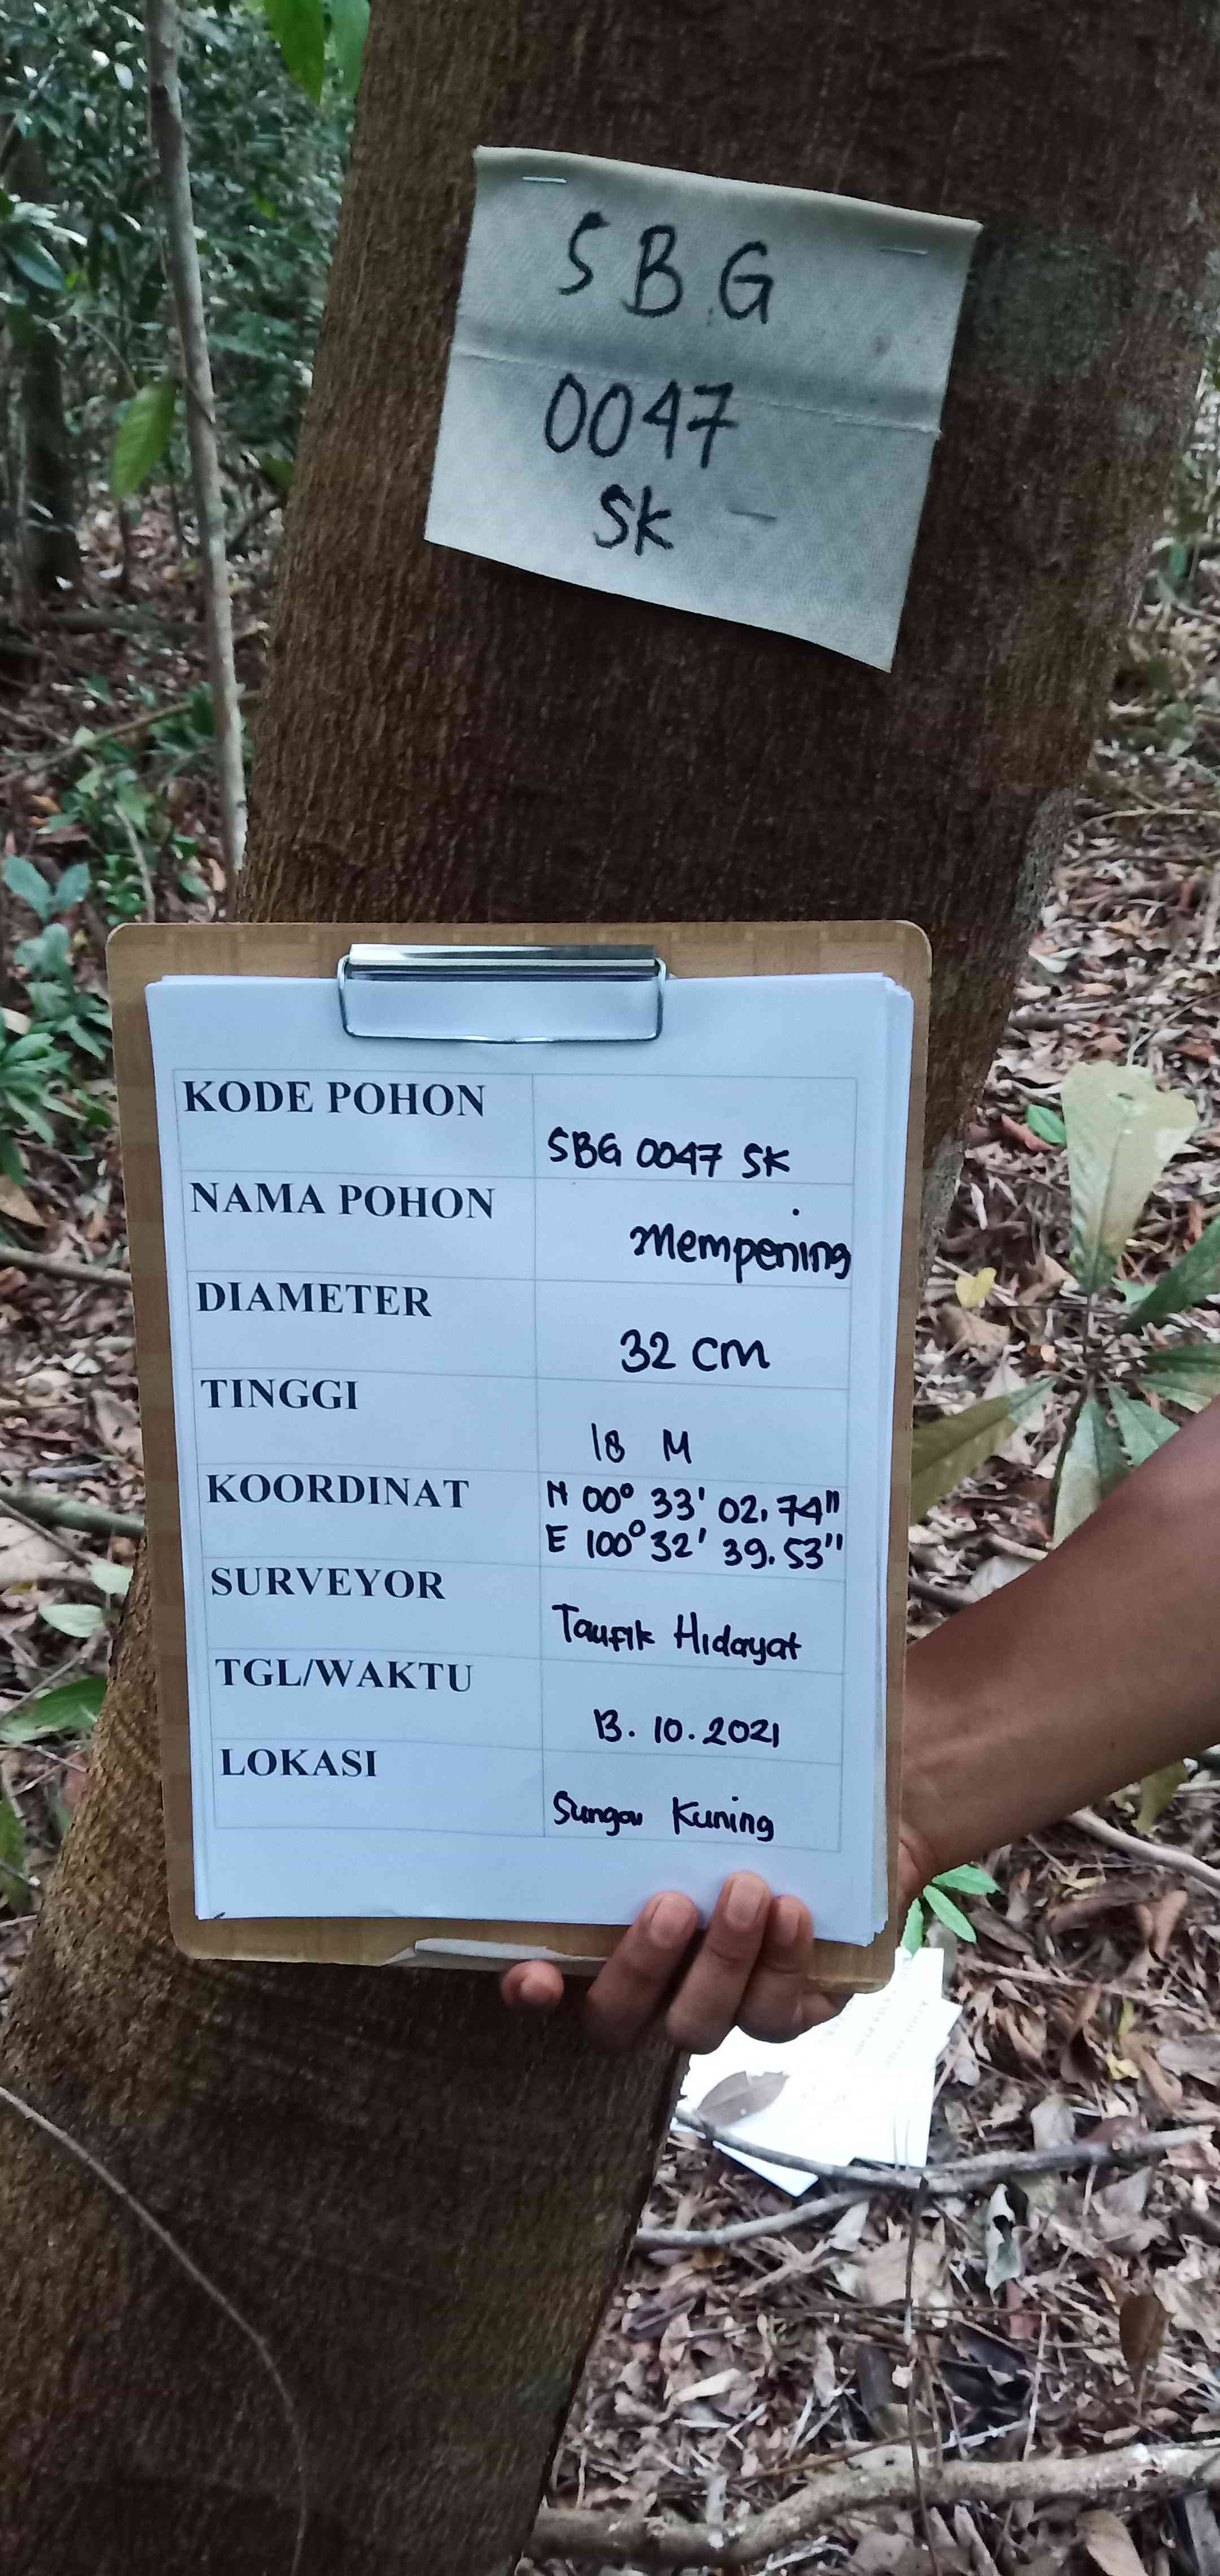 SBG
0047
SK
KODE POHON
SBG 0047 SK
NAMA POHON
Mempening
DIAMETER
32 cm
TINGGI
18 M
KOORDINAT
N 00° 33' 02.74"
E 100° 32' 39.53"
SURVEYOR
Taufik Hidayat
TGL/WAKTU
13.10.2021
LOKASI
Sungai Kuning